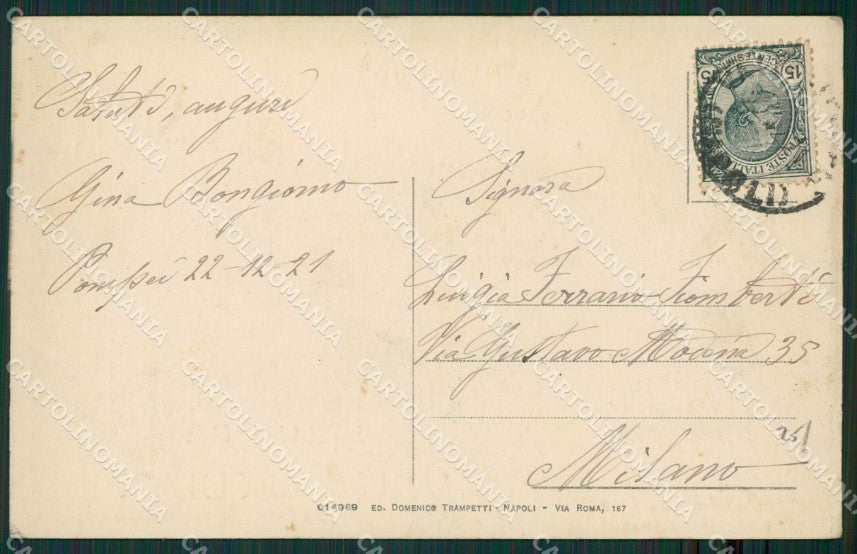 Saluti, auguri
Gina Bongiorno
Pompei 22-12-21
Signora
Luigia Ferrario Fiomberti
Via Gustavo Modena 35
Milano
25
15
CENTESIMI
15
POSTE ITALI
014969 ED. DOMENICO TRAMPETTI - NAPOLI - VIA ROMA, 167
CARTOLINOMANIA